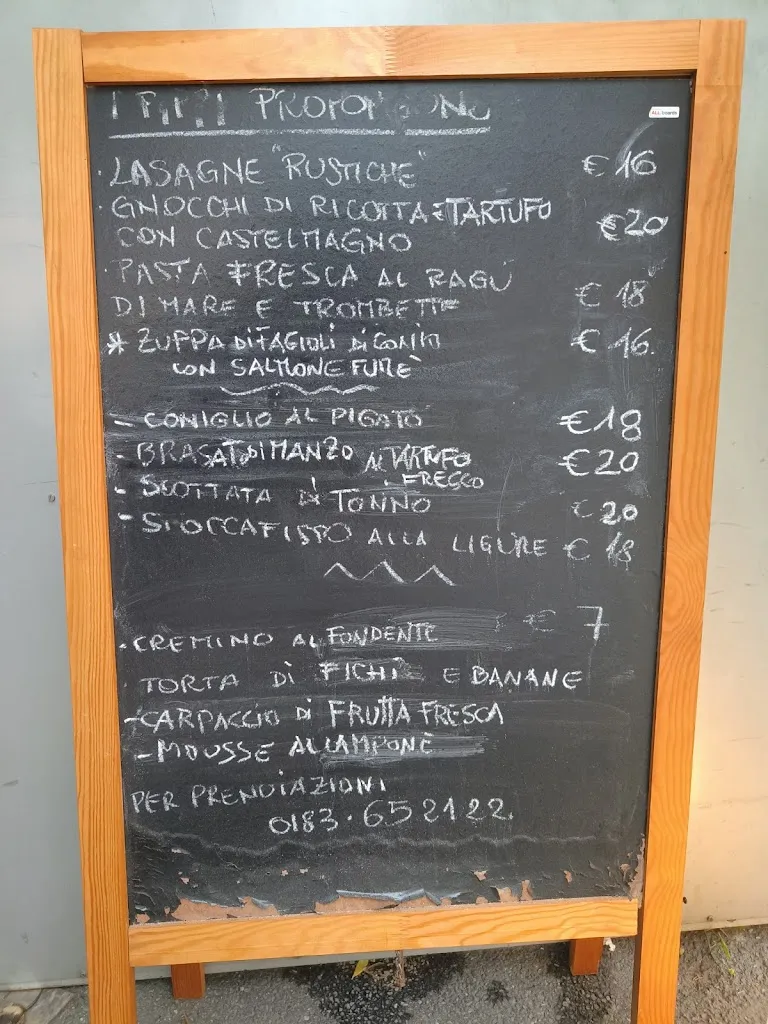 I PIPPI PROPONGONO
ALL boards
· LASAGNE "RUSTICHE" € 16
· GNOCCHI DI RICOTTA E TARTUFO
CON CASTELMAGNO €20
· PASTA FRESCA AL RAGÚ
DI MARE E TROMBETTE € 18
* ZUPPA DI FAGIOLI DI CONIO € 16.
CON SALMONE FUMÈ
- CONIGLIO AL PIGATO €18
- BRASATO DI MANZO AL TARTUFO €20
FRESCO
- SCOTTATA DI TONNO € 20
- STOCCAFISSO ALLA LIGURE € 18
€ 7
· CREMINO AL FONDENTE
· TORTA DI FICHI E BANANE
- CARPACCIO DI FRUTTA FRESCA
- MOUSSE AL LAMPONE
PER PRENOTAZIONI
0183·652122